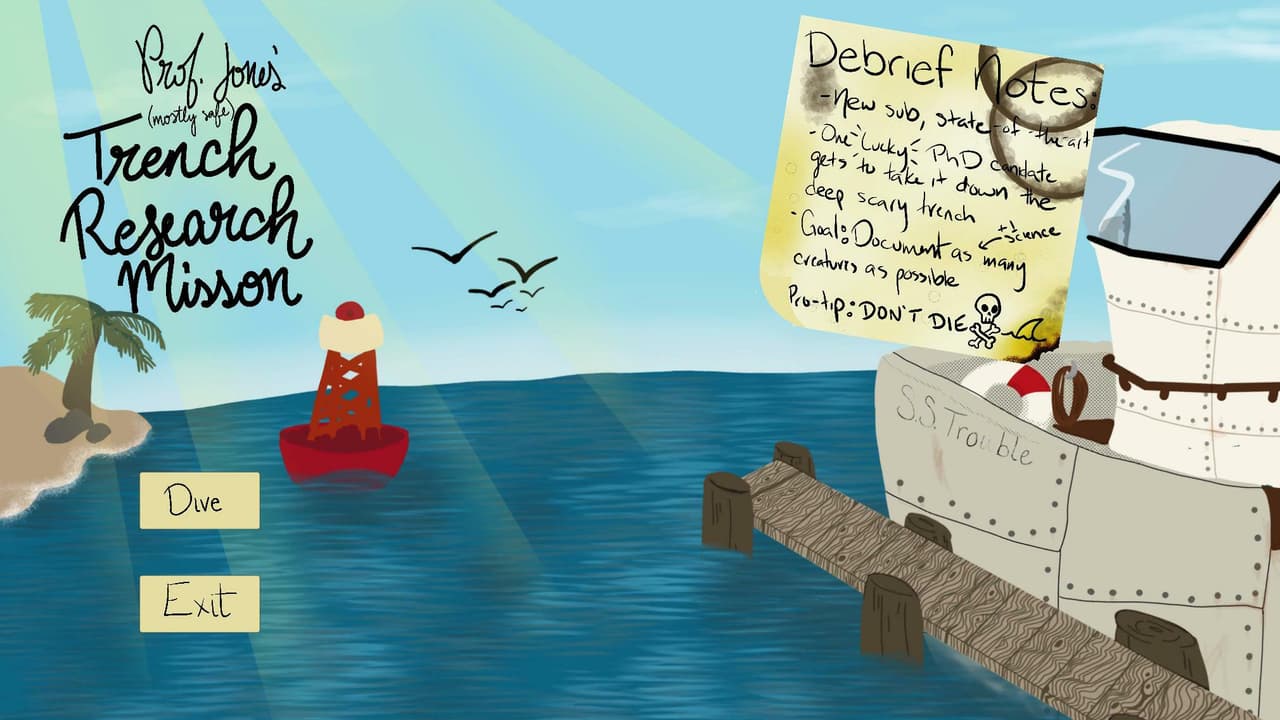 Prof. Jones'
(mostly safe)
Trench
Research
Misson
Debrief Notes:
-New sub, state-of-the-art
-One "Lucky" PhD candate
gets to take it down the
deep scary trench
+science
-Goal: Document as many
creatures as possible
Pro-tip: DON'T DIE
S.S. Trouble
Dive
Exit